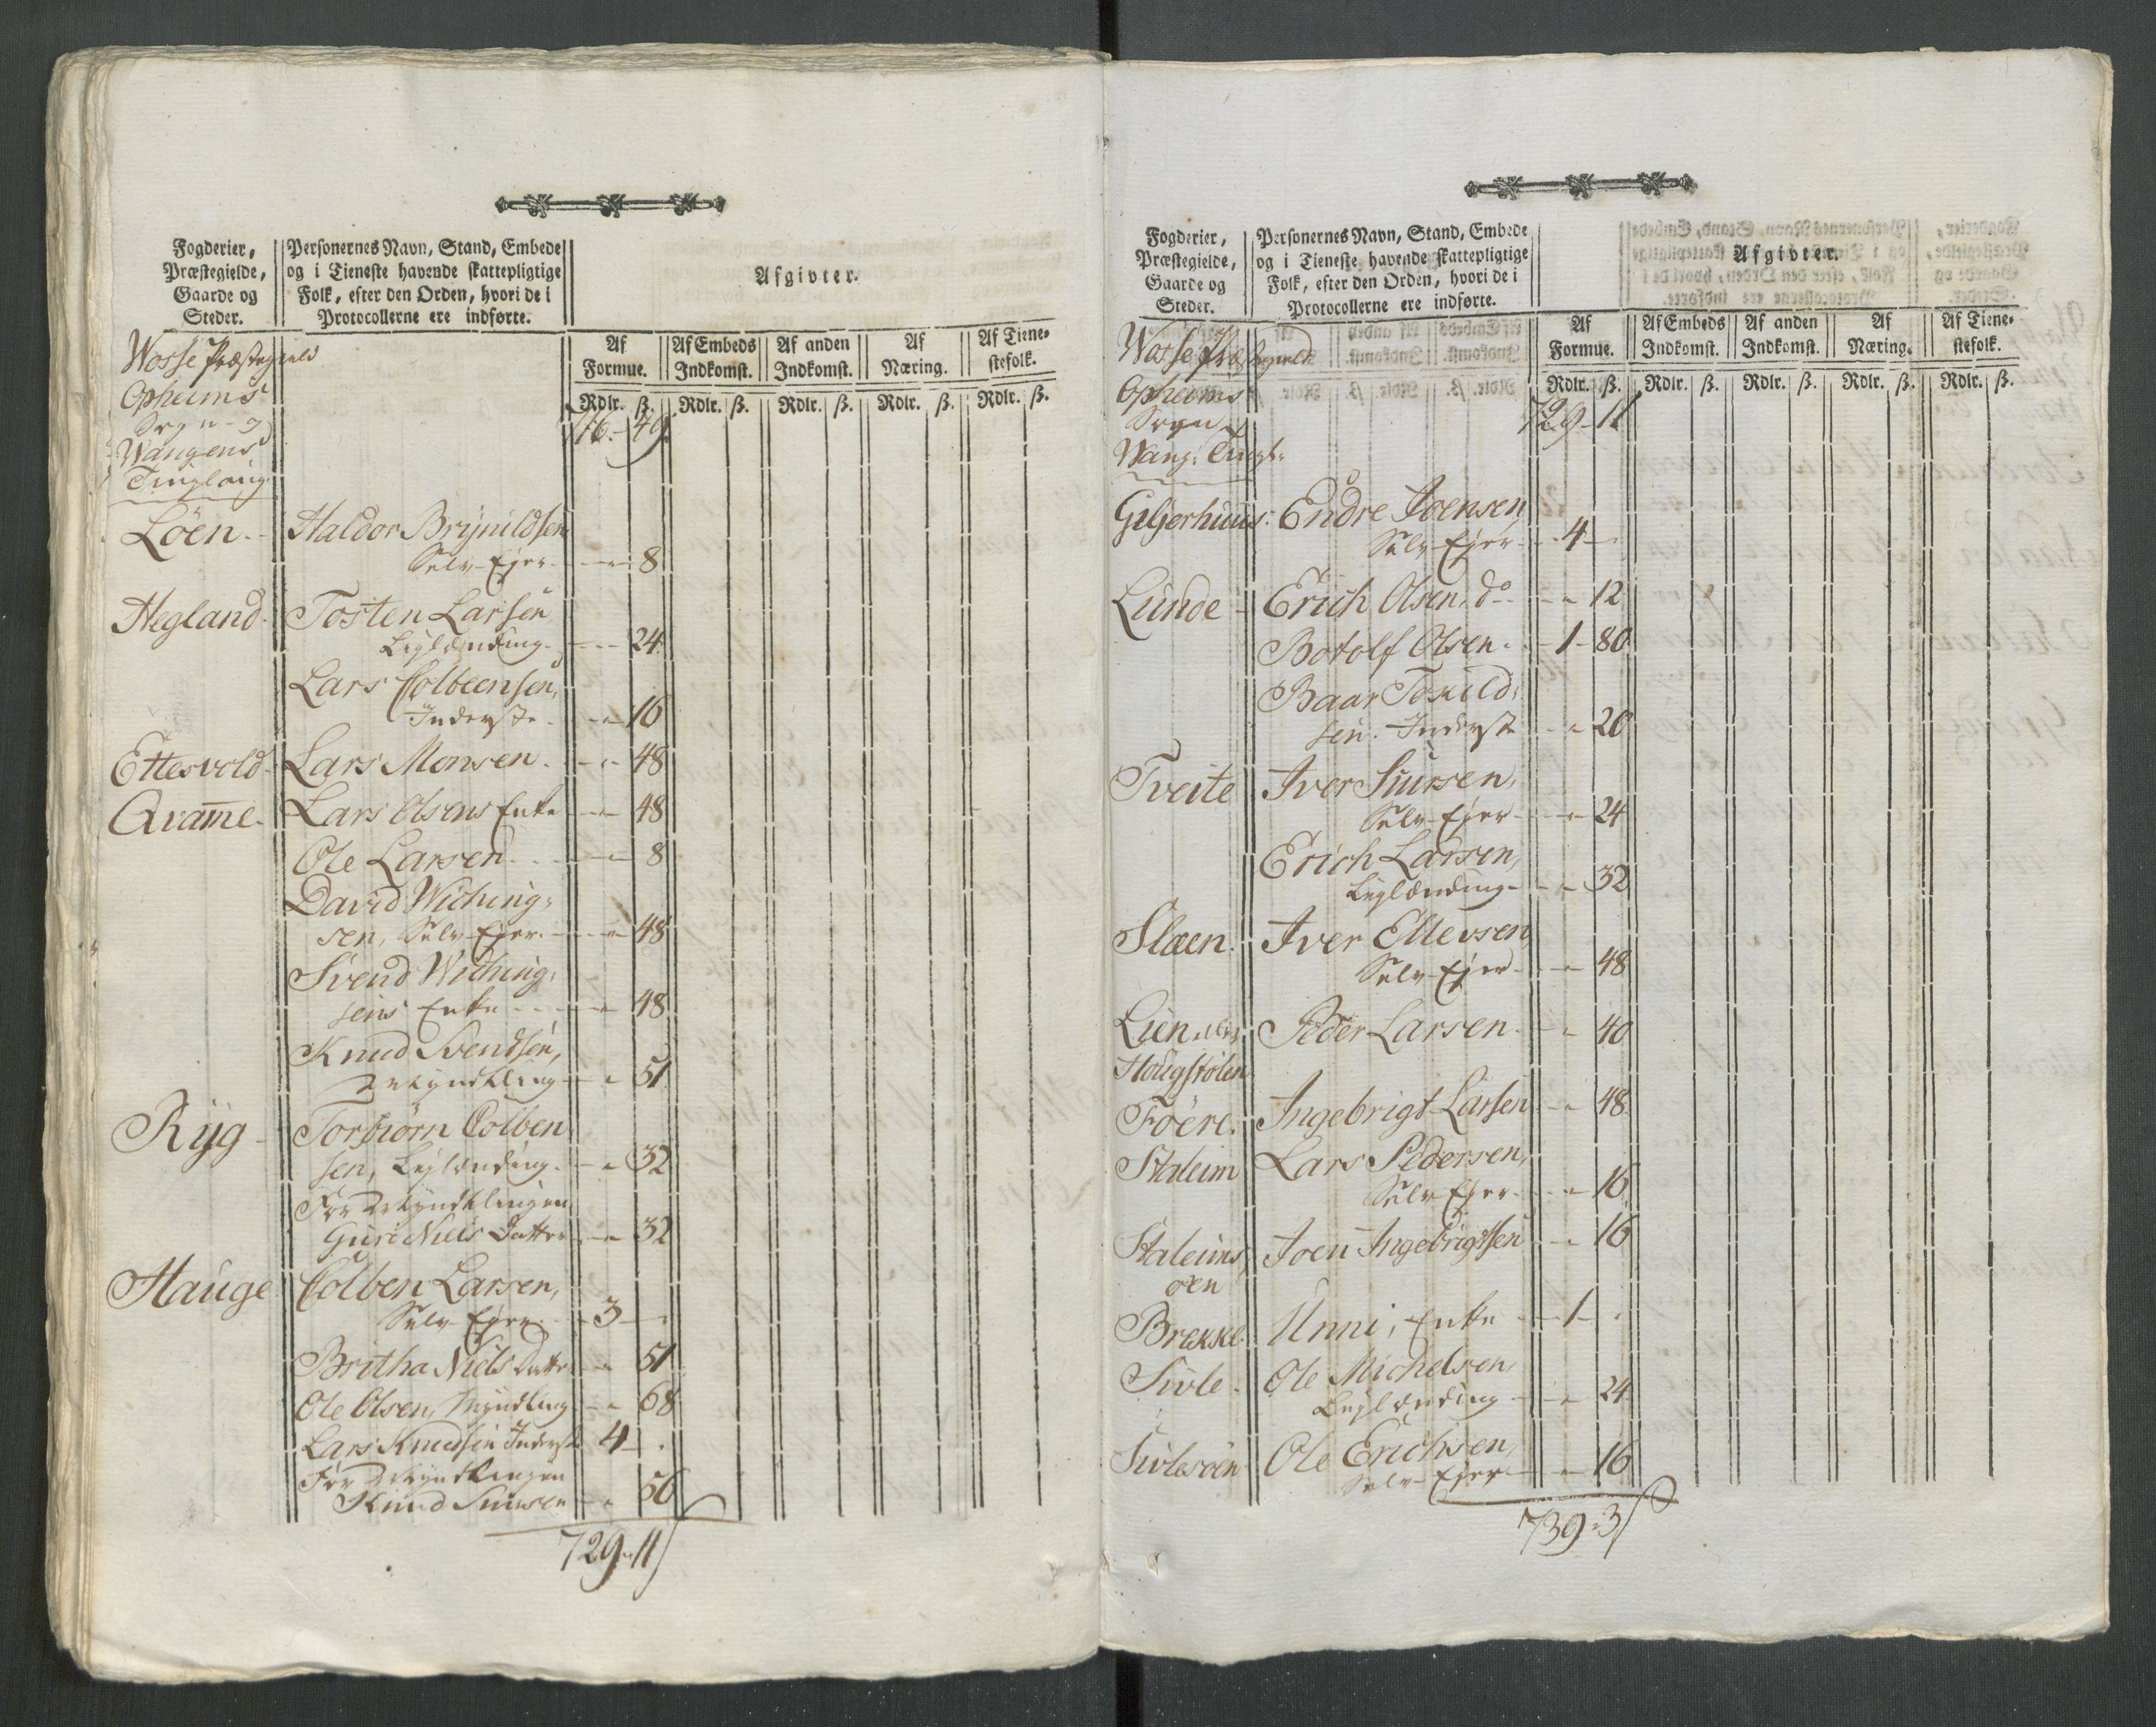 Fogderier,
Præstegielde,
Gaarde og
Steder.
Personernes Navn, Stand, Embede
og i Tieneste havende skattepligtige
Folk, efter den Orden, hvori de i
Protocollerne ere indførte.
Afgivter.
Af
Formue.
Af Embeds
Indkomst.
Af anden
Indkomst.
Af
Næring.
Af Tiene-
stefolk.
Rdlr. ß. Rdlr. ß. Rdlr. ß. Rdlr. ß. Rdlr. ß.
Wosse Præstegield
Opheims
Sogn - og
Wangens
Tinglaug
716 - 49
Löen - Haldor Brÿnildsen
Selv-Ejer - - - 8
Hegland - Tosten Larsen
Lejlænding - - - 24
Lars Colbeensen,
Inderste - - - 16
Ettesvold - Lars Monsen - - - 48
Qvam̅e - Lars Olsens Enke - - 48
Ole Larsen - - - 8
David Wiching-
sen, Selv-Ejer - - - 48
Svend Wiching-
sens Enke - - - 48
Knud Svendsen,
Myndtling - - 51
Rÿg - Torbiörn Colben
sen, Lejlænding - - 32
For Myndtlingen
Guri Niels Datter - - 32
Hauge Colben Larsen,
Selv-Ejer - 3 -
Britha Niels Datter - 51
Ole Olsen, Myndling - - 68
Lars Knudsen Inderste 4 -
For Myndlingen
Knud - - 56
729 - 11
Fogderier,
Præstegielde,
Gaarde og
Steder.
Personernes Navn, Stand, Embede
og i Tieneste havende skattepligtige
Folk, efter den Orden, hvori de i
Protocollerne ere indførte.
Afgivter.
Af
Formue.
Af Embeds
Indkomst.
Af anden
Indkomst.
Af
Næring.
Af Tiene-
stefolk.
Rdlr. ß. Rdlr. ß. Rdlr. ß. Rdlr. ß. Rdlr. ß.
Wosse Præstegield
Opheims
Sogn
Wang: Tingl:
729 - 11
Giljerhuus: Endre Joensen,
Selv-Ejer - 4 -
Lunde - Erich Olsen, do - - 12
Botolf Olsen - 1 - 80
Baar Toxild-
sen. Inderste - - 20
Tveite Iver Siursen,
Selv-Ejer - - 24
Erich Larsen,
Lejlænding - - - 32
Slæen. Iver Ellevsen
Selv-Ejer - - 48
Lien eller Peder Larsen - - 40
Hougstölen
Föere. Ingebrigt Larsen - - 48
Staleim Lars Pedersen,
Selv-Ejer - - 16
Staleims Joen Ingebrigtsen - - 16
öen
Brekke Unni, Enke - 1 -
Sivle - Ole Michelsen,
Lejlænding - - 24
Sivlesöen Ole Erichsen,
Selv-Ejer - - 16
739 - 3